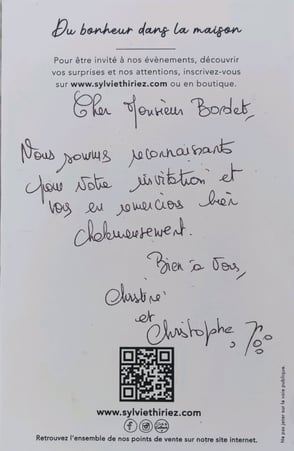 Du bonheur dans la maison
Pour être invité à nos évènements, découvrir
vos surprises et nos attentions, inscrivez-vous
sur www.sylviethiriez.com ou en boutique.
Cher Monsieur Bordet,
Nous sommes reconnaissants
pour votre invitation et
vous en remercions bien
chaleureusement.
Bien à vous,
Christine
et
Christophe,
www.sylviethiriez.com
Retrouvez l'ensemble de nos points de vente sur notre site internet.
Ne pas jeter sur la voie publique.